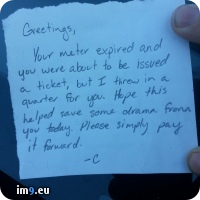 Greetings,
Your meter expired and
you were about to be issued
a ticket, but I threw in a
quarter for you. Hope this
helped save some drama from
you today. Please simply pay
it forward.
-C
im9.eu